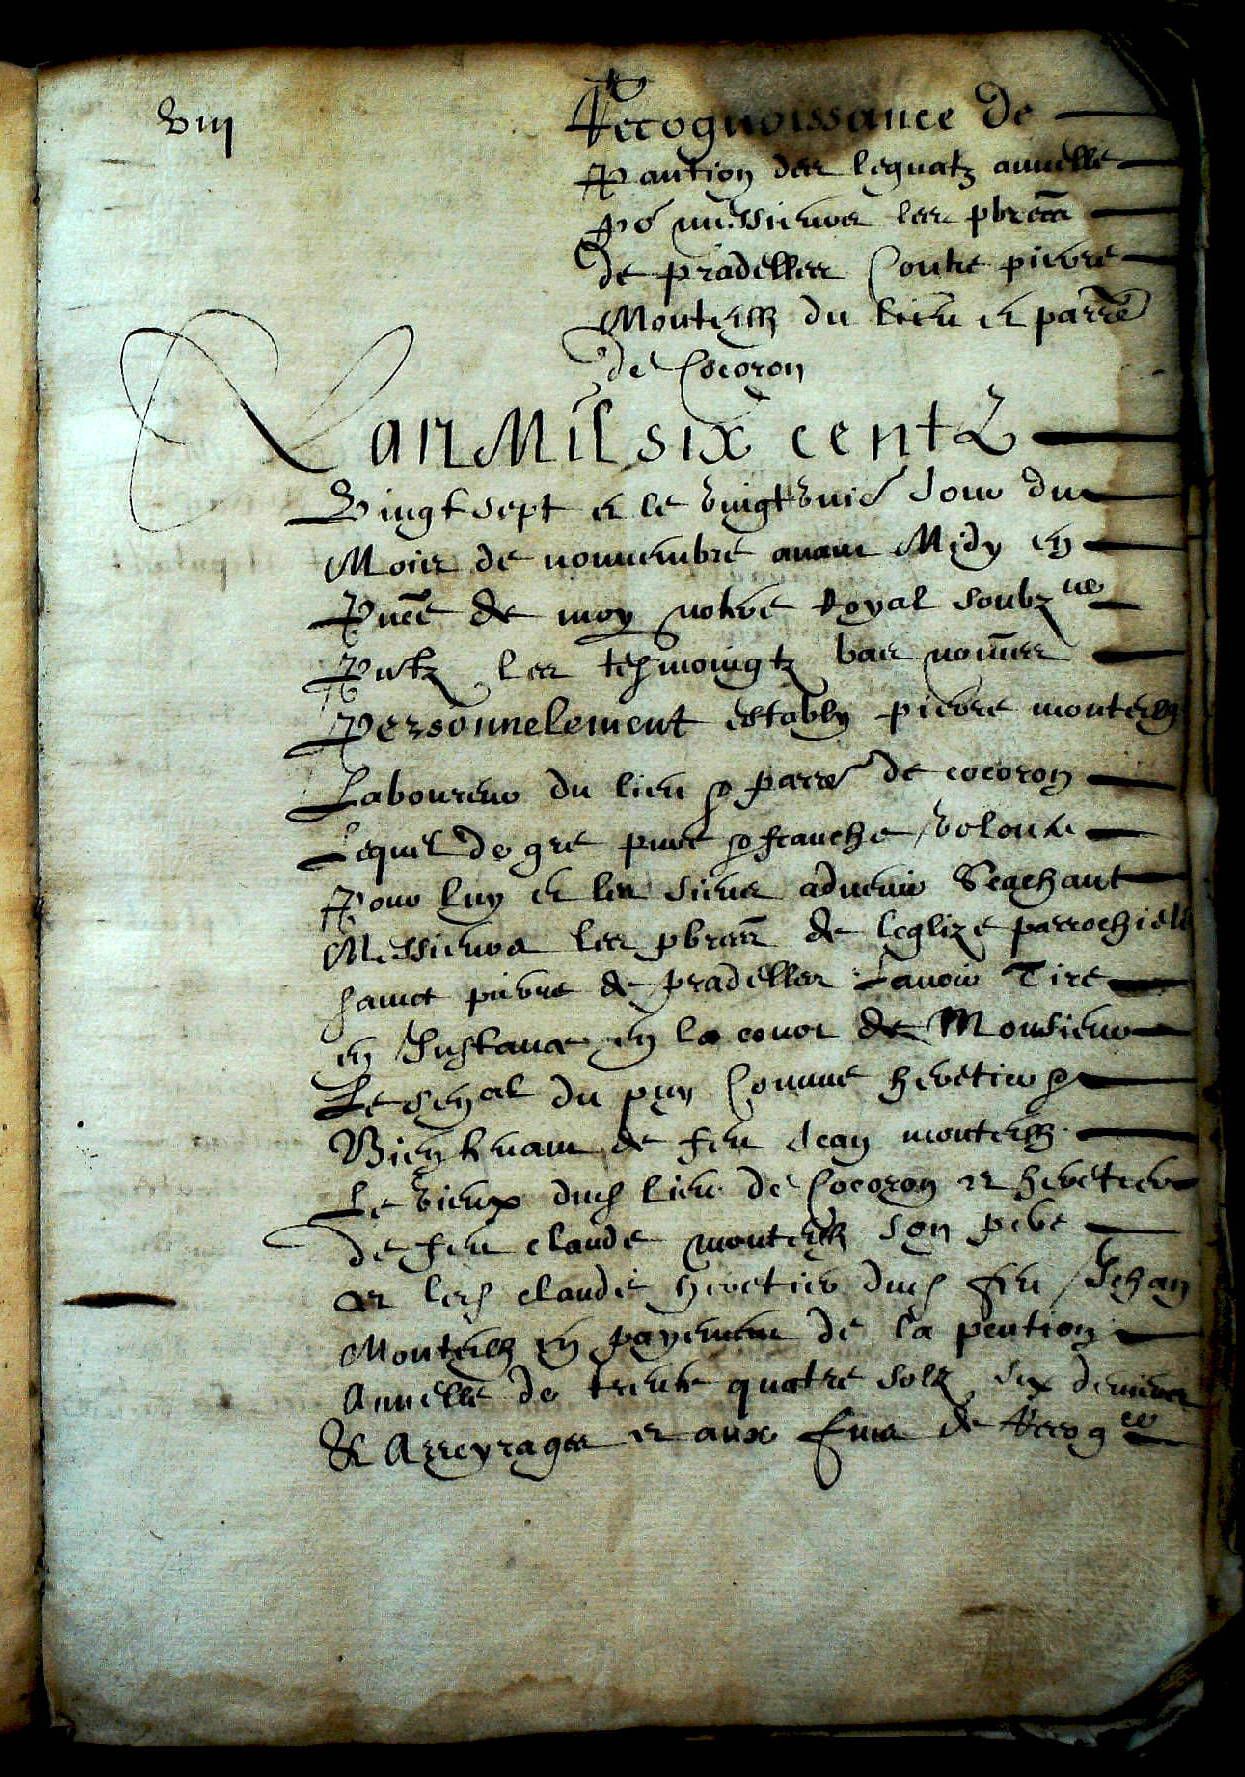 viii
Recognoissance de
Pantion des leguatz annuelle
po messieurs les pbres
de pradelles Contre pierre
Monteilh du lieu et parre
de Cocoron
Lan Mil six centz
Vingt sept et le vingt Jour du
Mois de novembre avant Midy en
Pnce de moy notre Royal soubzne
les tesmoingtz bas nommes
Personnelement estably pierre monteilh
Laboureur du lieu & parre de cocoron
Lequel de gre pure & franche volonte
Pour luy et les siens advenir Sachant
Messieurs les pbres de leglize parrochiele
sainct pierre de pradelles Lavoir Tire
en Instance en la cour de Monsieur
Le senal du puy Comme heretier &
Bien tenant de feu Jean monteilh
Le vieux dud lieu de Cocoron et heretier
de feu claude monteilh son pere
et led claude heretier dud feu Jehan
Monteilh en payement de la pention
Annuelle de trente quatre solz six deniers
& Arreyrages et aux fins de Recogce